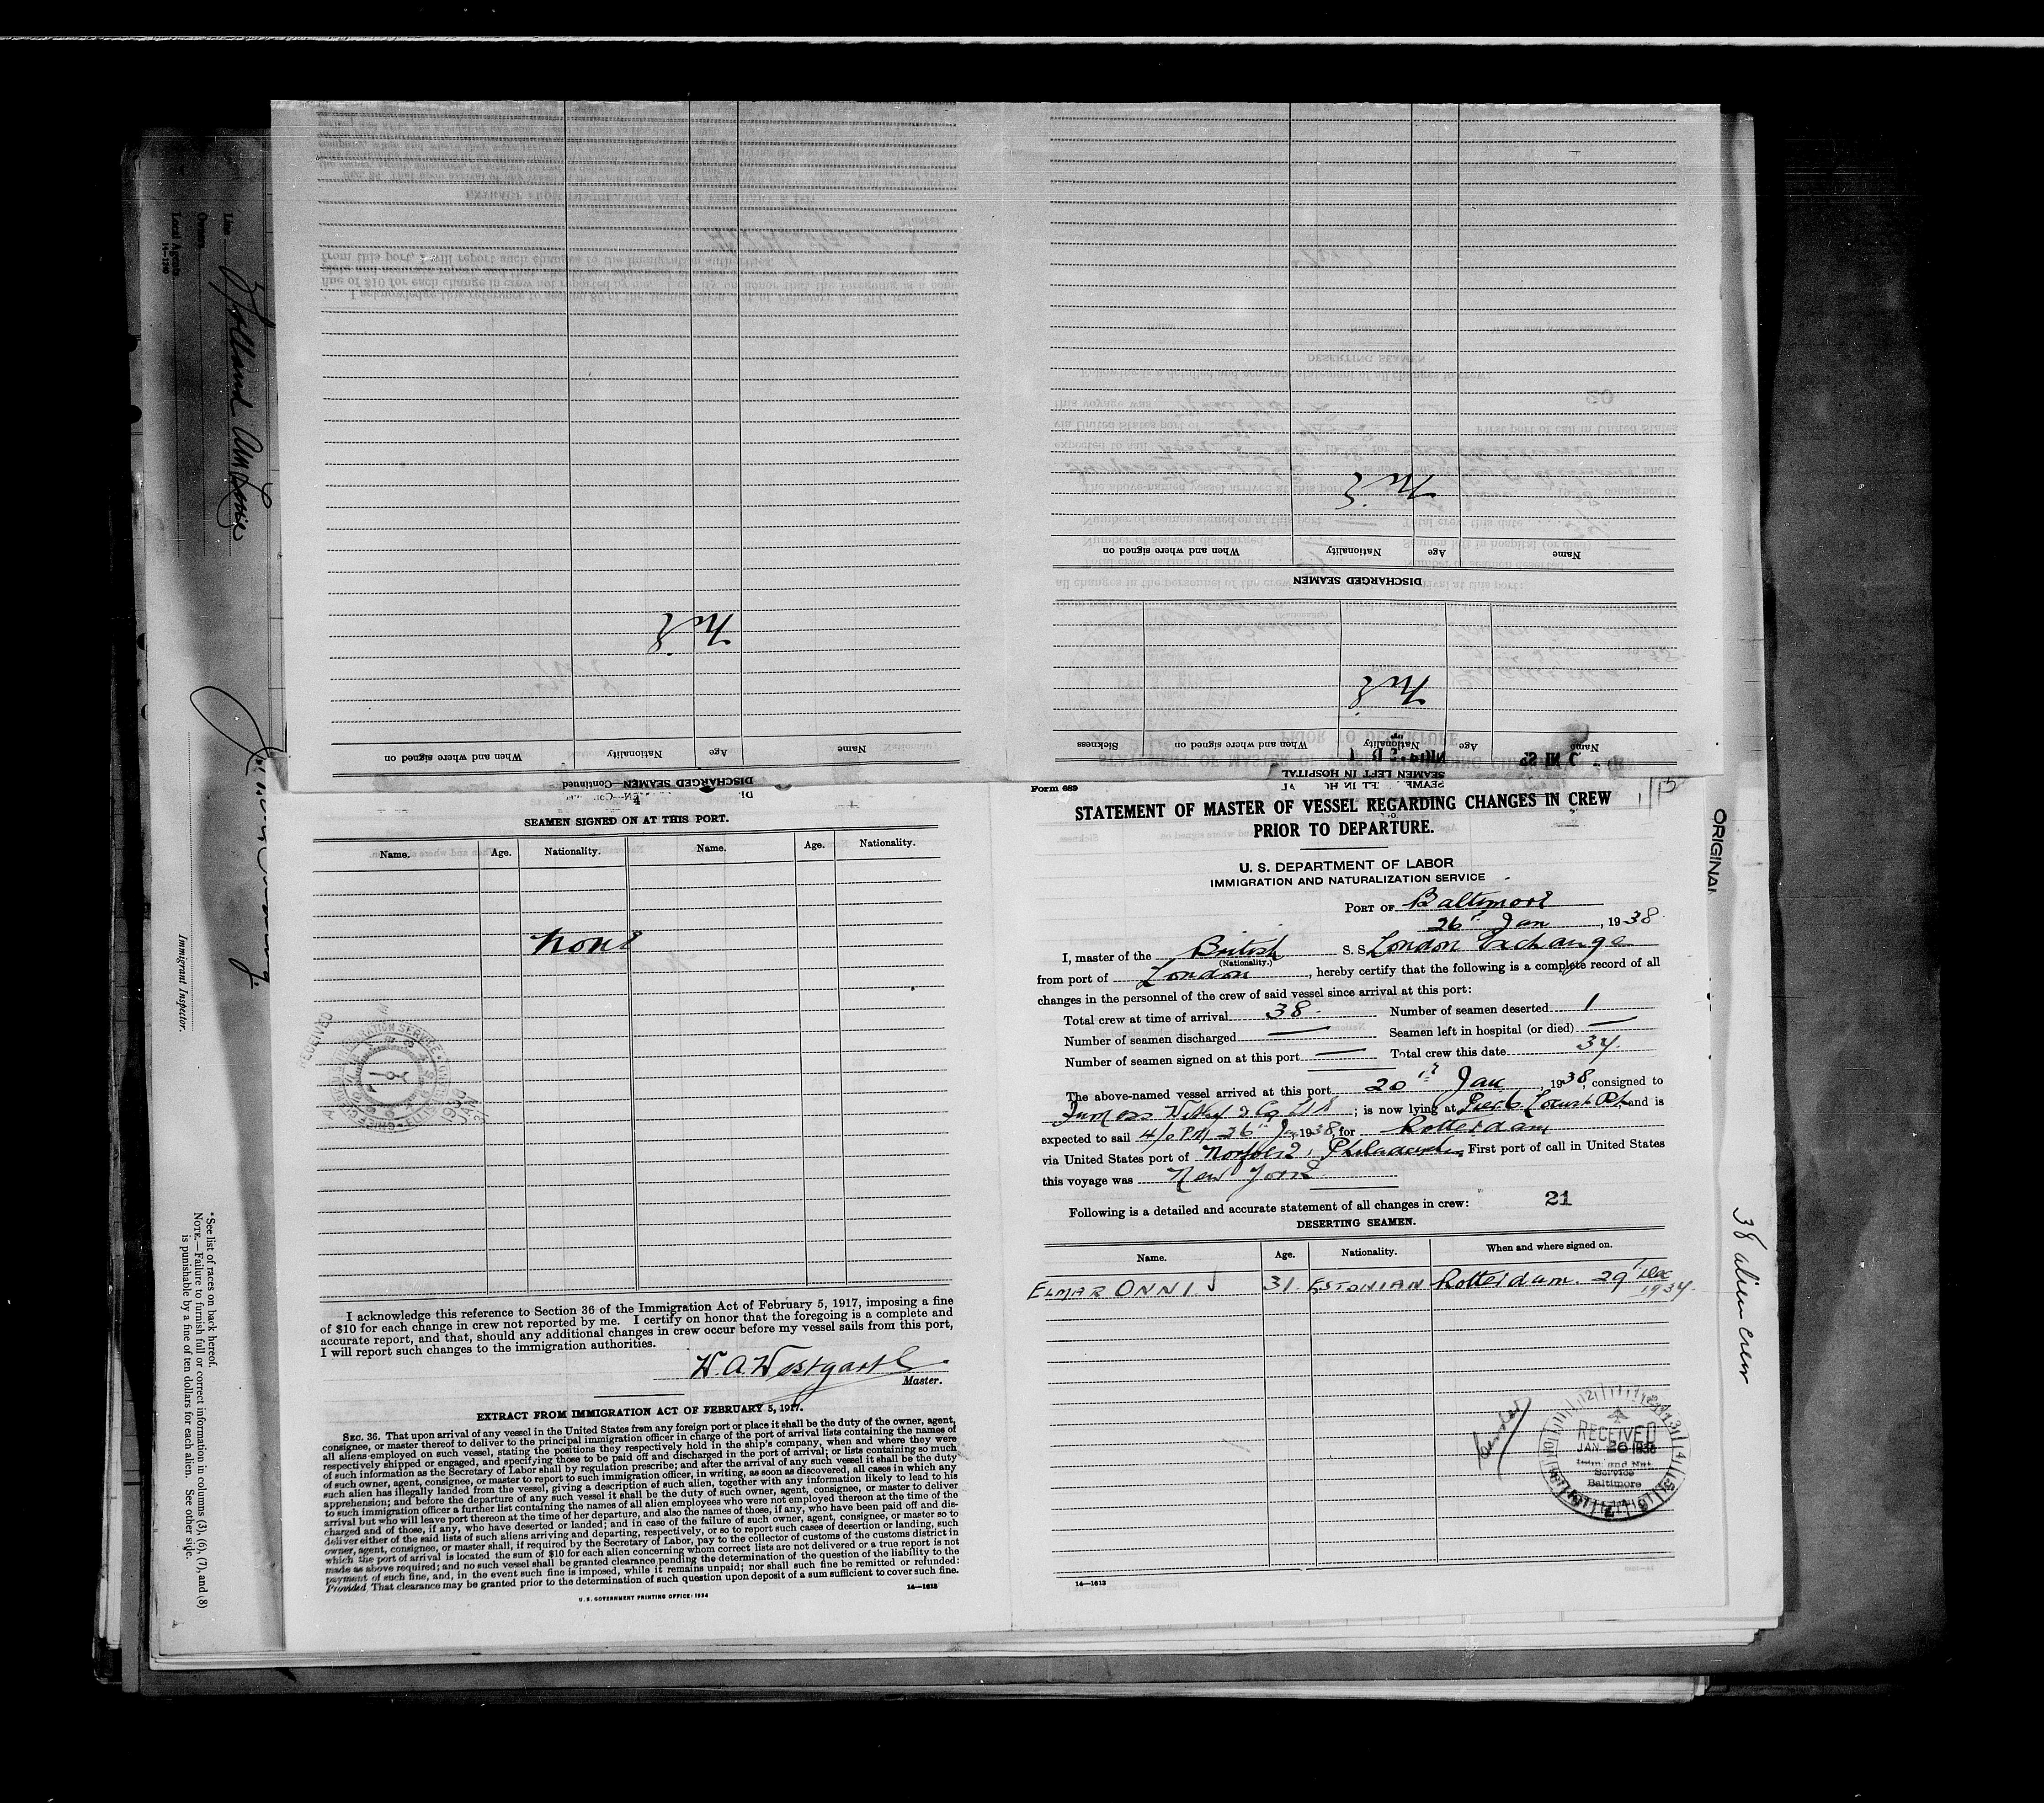 Line Holland Am Line
Owners
Local Agents
14—1190
Immigrant Inspector.
*See list of races on back hereof.
NOTE.—Failure to furnish full or correct information in columns (3), (6), (7), and (8)
is punishable by a fine of ten dollars for each alien. See other side.
DISCHARGED SEAMEN—Continued
Name Age Nationality When and where signed on
Nil
SEAMEN LEFT IN HOSPITAL
Name Age Nationality When and where signed on Sickness
Nil
DISCHARGED SEAMEN
Name Age Nationality When and where signed on
Nil
SEAMEN SIGNED ON AT THIS PORT.
Name. Age. Nationality. Name. Age. Nationality.
None
RECEIVED
I acknowledge this reference to Section 36 of the Immigration Act of February 5, 1917, imposing a fine
of $10 for each change in crew not reported by me. I certify on honor that the foregoing is a complete and
accurate report, and that, should any additional changes in crew occur before my vessel sails from this port,
I will report such changes to the immigration authorities.
W. A. Westgarth
Master.
EXTRACT FROM IMMIGRATION ACT OF FEBRUARY 5, 1917.
SEC. 36. That upon arrival of any vessel in the United States from any foreign port or place it shall be the duty of the owner, agent,
consignee, or master thereof to deliver to the principal immigration officer in charge of the port of arrival lists containing the names of
all aliens employed on such vessel, stating the positions they respectively hold in the ship's company, when and where they were
respectively shipped or engaged, and specifying those to be paid off and discharged in the port of arrival; or lists containing so much
of such information as the Secretary of Labor shall by regulation prescribe; and after the arrival of any such vessel it shall be the duty
of such owner, agent, consignee, or master to report to such immigration officer, in writing, as soon as discovered, all cases in which any
such alien has illegally landed from the vessel, giving a description of such alien, together with any information likely to lead to his
apprehension; and before the departure of any such vessel it shall be the duty of such owner, agent, consignee, or master to deliver
to such immigration officer a further list containing the names of all alien employees who were not employed thereon at the time of the
arrival but who will leave port thereon at the time of her departure, and also the names of those, if any, who have been paid off and dis-
charged and of those, if any, who have deserted or landed; and in case of the failure of such owner, agent, consignee, or master so to
deliver either of the said lists of such aliens arriving and departing, respectively, or so to report such cases of desertion or landing, such
owner, agent, consignee, or master shall, if required by the Secretary of Labor, pay to the collector of customs of the customs district in
which the port of arrival is located the sum of $10 for each alien concerning whom correct lists are not delivered or a true report is not
made as above required; and no such vessel shall be granted clearance pending the determination of the question of the liability to the
payment of such fine, and, in the event such fine is imposed, while it remains unpaid; nor shall such fine be remitted or refunded:
Provided, That clearance may be granted prior to the determination of such question upon deposit of a sum sufficient to cover such fine.
U. S. GOVERNMENT PRINTING OFFICE: 1934
14—1613
Form 689
STATEMENT OF MASTER OF VESSEL REGARDING CHANGES IN CREW
PRIOR TO DEPARTURE.
U. S. DEPARTMENT OF LABOR
IMMIGRATION AND NATURALIZATION SERVICE
PORT OF Baltimore
26th Jan, 1938.
I, master of the British S. S. London Exchange
(Nationality.)
from port of London, hereby certify that the following is a complete record of all
changes in the personnel of the crew of said vessel since arrival at this port:
Total crew at time of arrival 38. Number of seamen deserted 1
Number of seamen discharged — Seamen left in hospital (or died) —
Number of seamen signed on at this port — Total crew this date 37.
The above-named vessel arrived at this port 20th Jan, 1938, consigned to
Furness Withy & Co Ltd; is now lying at Pier 6 Locust Pt, and is
expected to sail 4/0 PM 26th Jan, 1938, for Rotterdam
via United States port of Norfolk, Philadelphia First port of call in United States
this voyage was New York
Following is a detailed and accurate statement of all changes in crew: 21
DESERTING SEAMEN.
Name. Age. Nationality. When and where signed on.
ELMAR ONNI 31. ESTONIAN Rotterdam. 29th Dec 1937.
RECEIVED
JAN 26 1938
Imm. and Nat.
Service
Baltimore
14—1613
ORIGINAL
38 alien crew